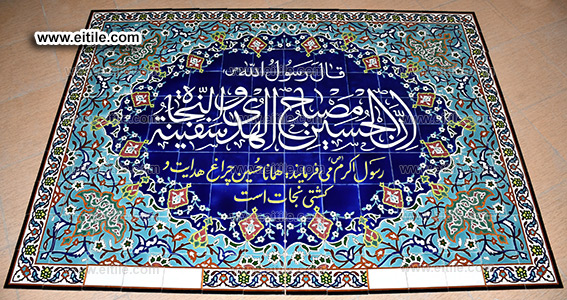 www.eitile.com
قال رسول الله
ان الحسین مصباح الهدی و سفینة النجاة
رسول اکرم می فرمایند: همانا حسین چراغ هدایت و
کشتی نجات است
www.eitile.com